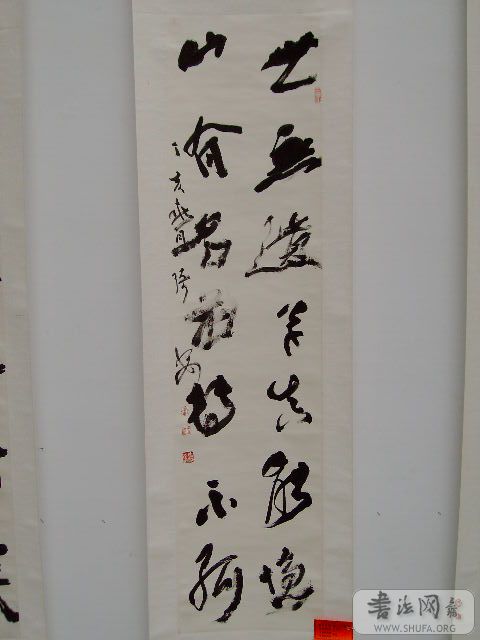 世無遺草真能隱
山有名花轉不孤
丁亥
書法网
WWW.SHUFA.ORG